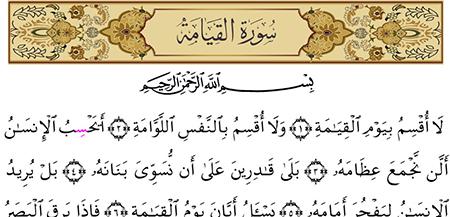 سُورَةُ الْقِيَامَةِ
بِسْمِ اللَّهِ الرَّحْمَٰنِ الرَّحِيمِ
لَا أُقْسِمُ بِيَوْمِ الْقِيَامَةِ ﴿١﴾ وَلَا أُقْسِمُ بِالنَّفْسِ اللَّوَّامَةِ ﴿٢﴾ أَيَحْسِبُ الْإِنسَٰنُ
أَلَّن نَّجْمَعَ عِظَامَهُۥ ﴿٣﴾ بَلَىٰ قَٰدِرِينَ عَلَىٰ أَن نُّسَوِّىَ بَنَانَهُۥ ﴿٤﴾ بَلْ يُرِيدُ
الْإِنسَٰنُ لِيَفْجُرَ أَمَامَهُۥ ﴿٥﴾ يَسْـَٔلُ أَيَّانَ يَوْمُ الْقِيَٰمَةِ ﴿٦﴾ فَإِذَا بَرِقَ الْبَصَرُ